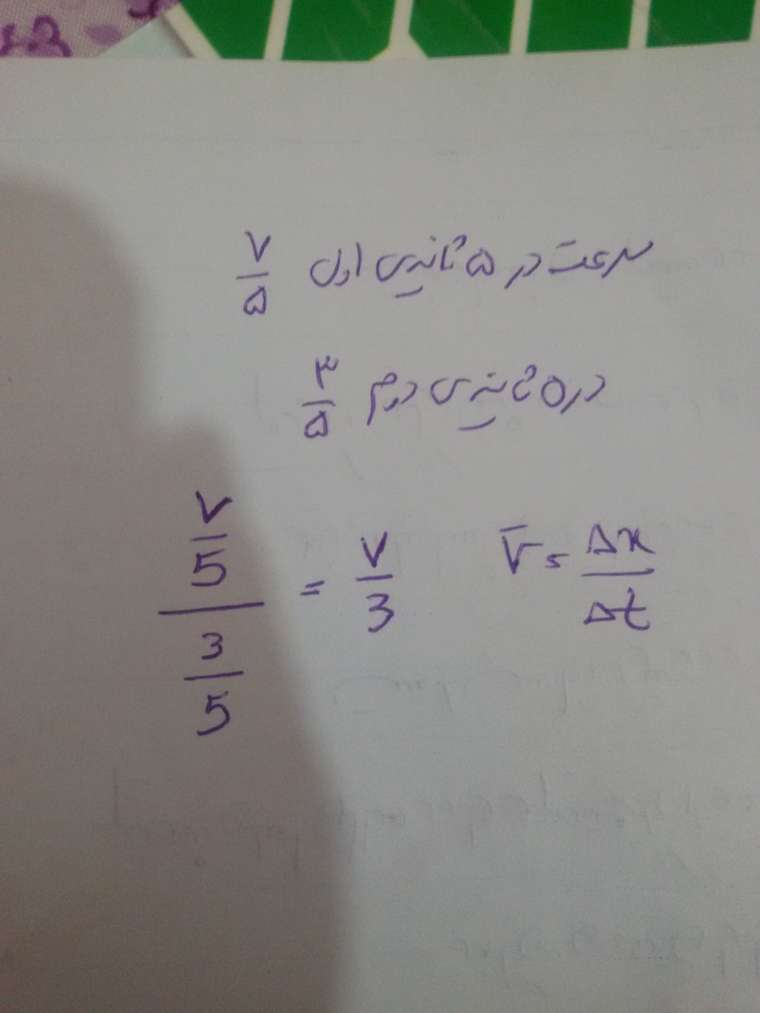 سرعت در ۵ ثانیه‌ی اول ۷/۵
در ۵ ثانیه‌ی دوم ۳/۵
(۷/5)/(3/5) = ۷/3 V̄ = Δx/Δt